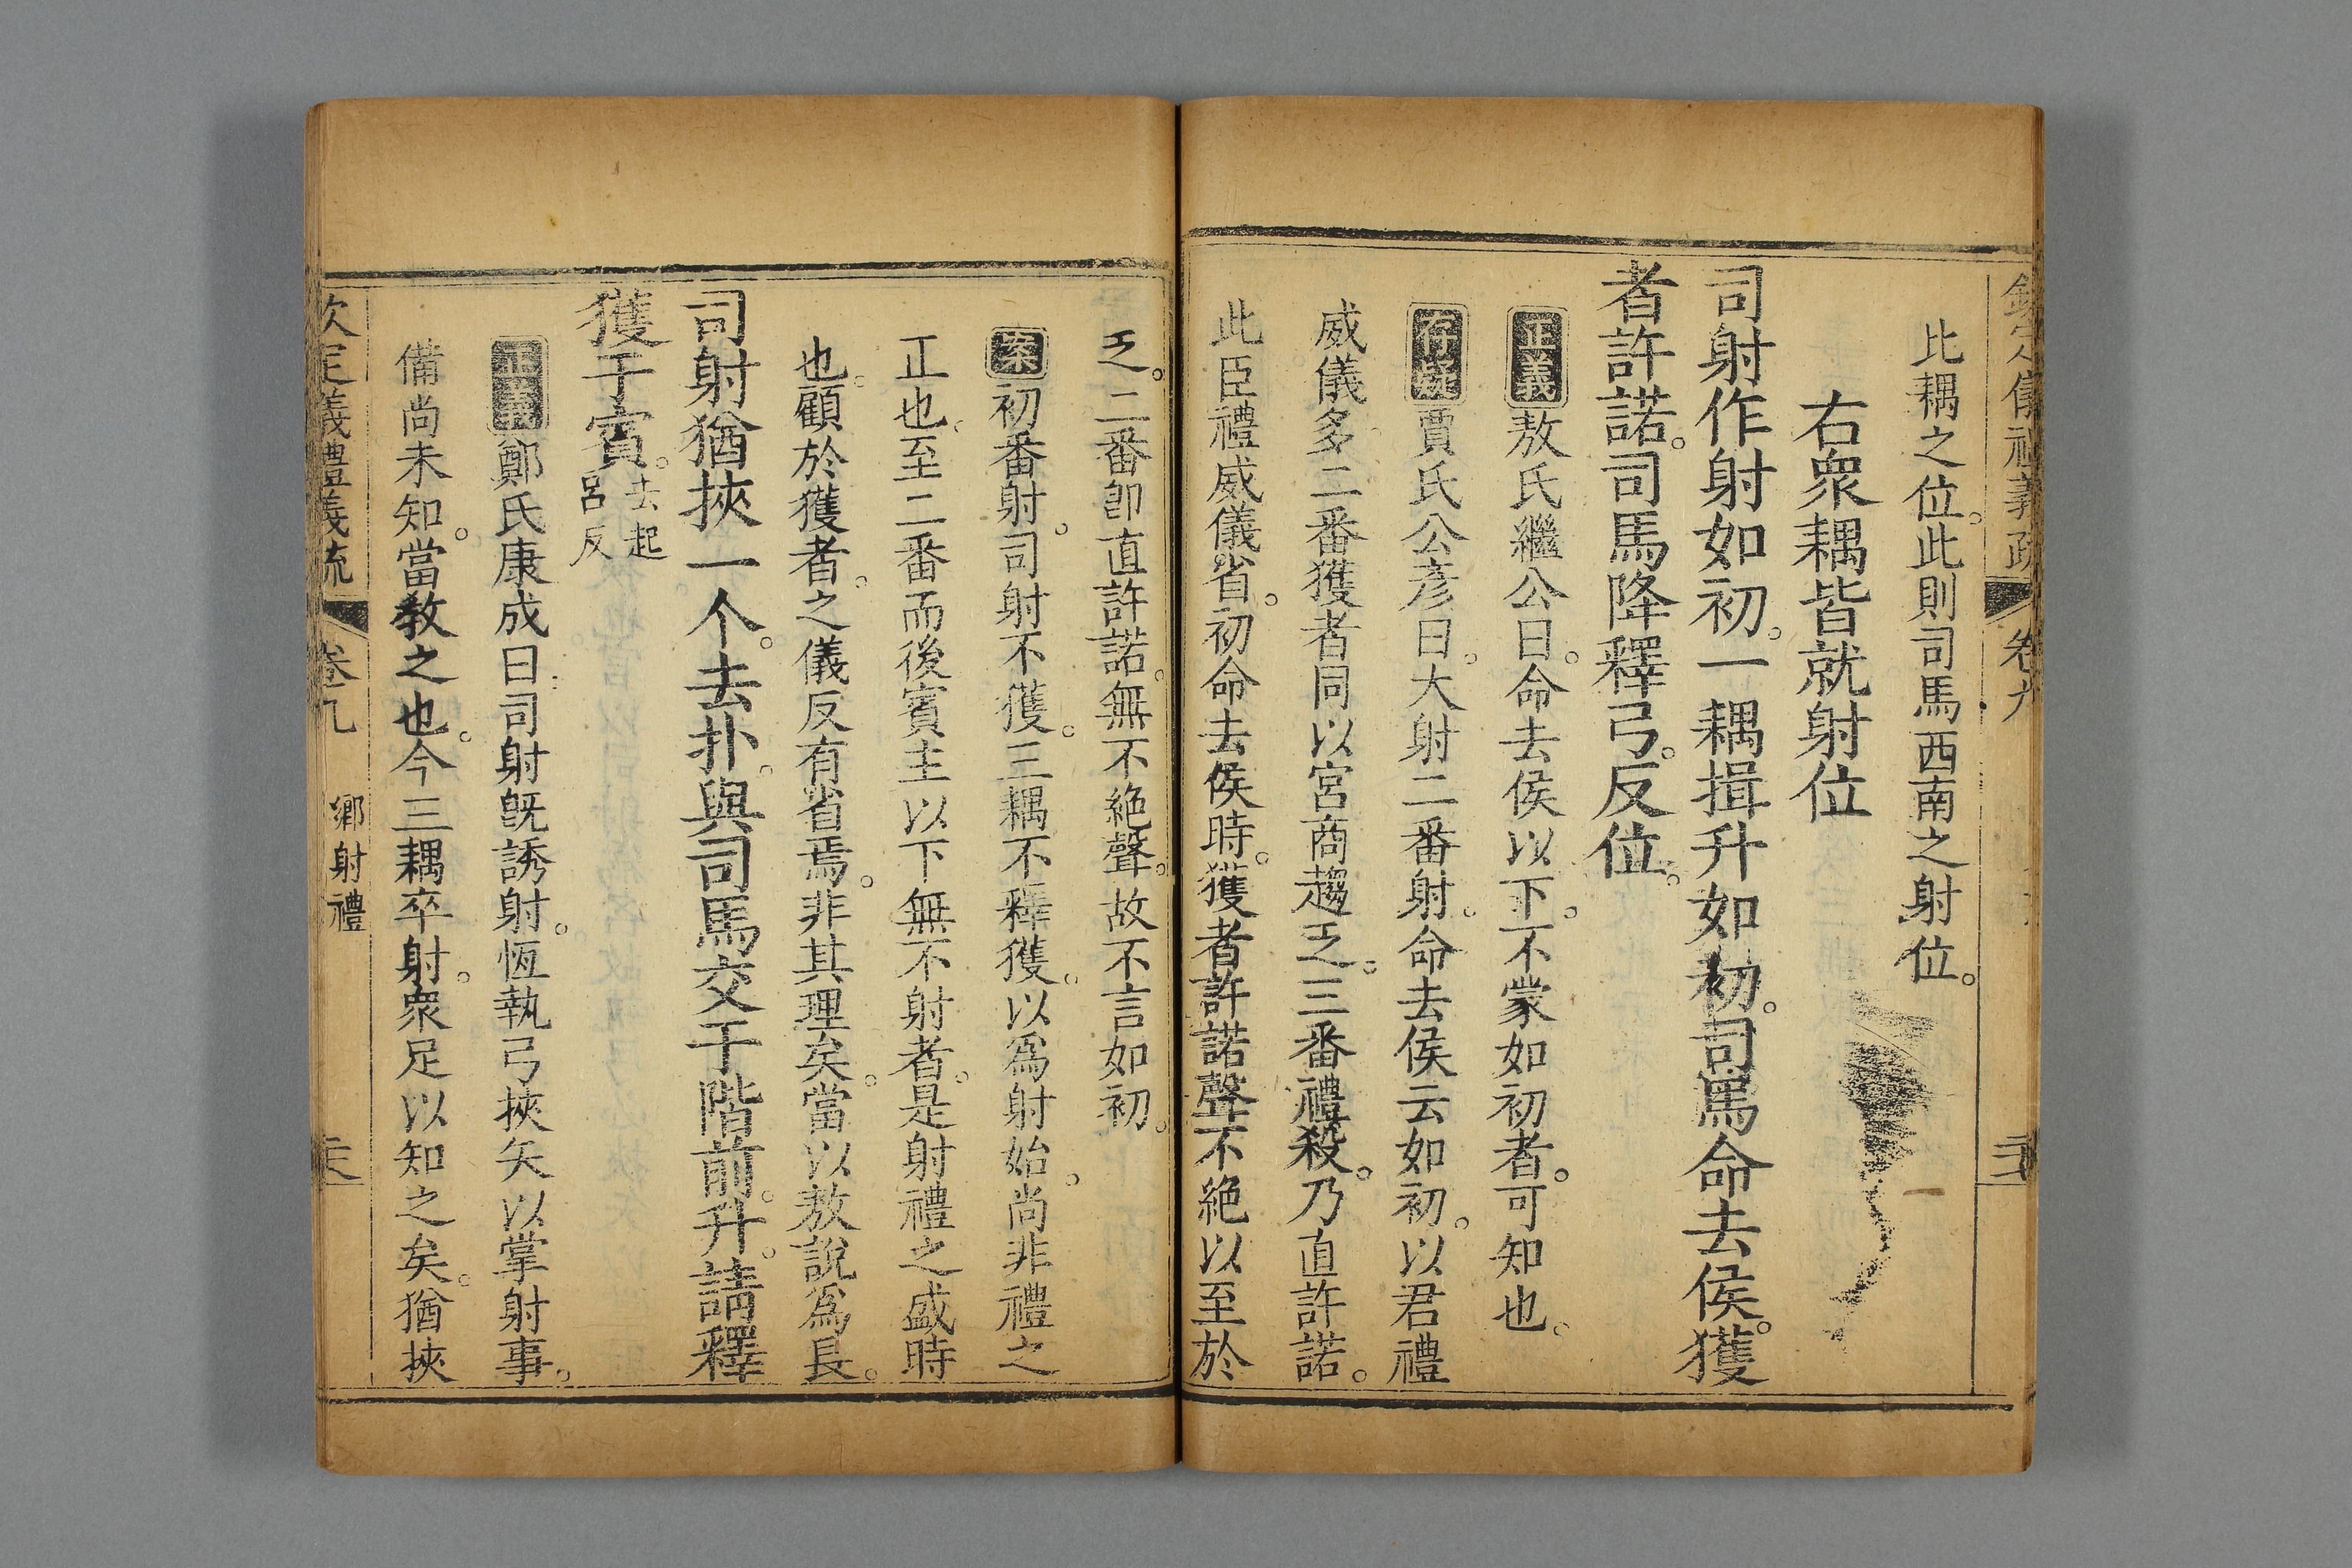 比耦之位。此則司馬西南之射位。
右衆耦皆就射位
司射作射如初。一耦揖升如初。司馬命去侯。獲
者許諾。司馬降釋弓。反位。
正義敖氏繼公曰。命去侯以下。不蒙如初者。可知也。
存疑賈氏公彥曰。大射二番射。命去侯云如初。以君禮
威儀多二番獲者同以宮商趨乏。三番禮殺。乃直許諾。
此臣禮威儀省。初命去侯時。獲者許諾聲不絶以至於
乏。二番卽直許諾。無不絶聲。故不言如初。
案初番射。司射不獲。三耦不釋獲。以爲射始。尚非禮之
正也。至二番而後賓主以下無不射者。是射禮之盛時
也。顧於獲者。之儀反有省焉。非其理矣。當以敖說爲長。
司射猶挾一个。去扑。與司馬交于階前。升。請釋
獲于賓。去起呂反
正義鄭氏康成曰。司射旣誘射。恆執弓挾矢以掌射事。
備尚未知。當敎之也。今三耦卒射。衆足以知之矣。猶挾
欽定儀禮義疏 卷九 鄉射禮